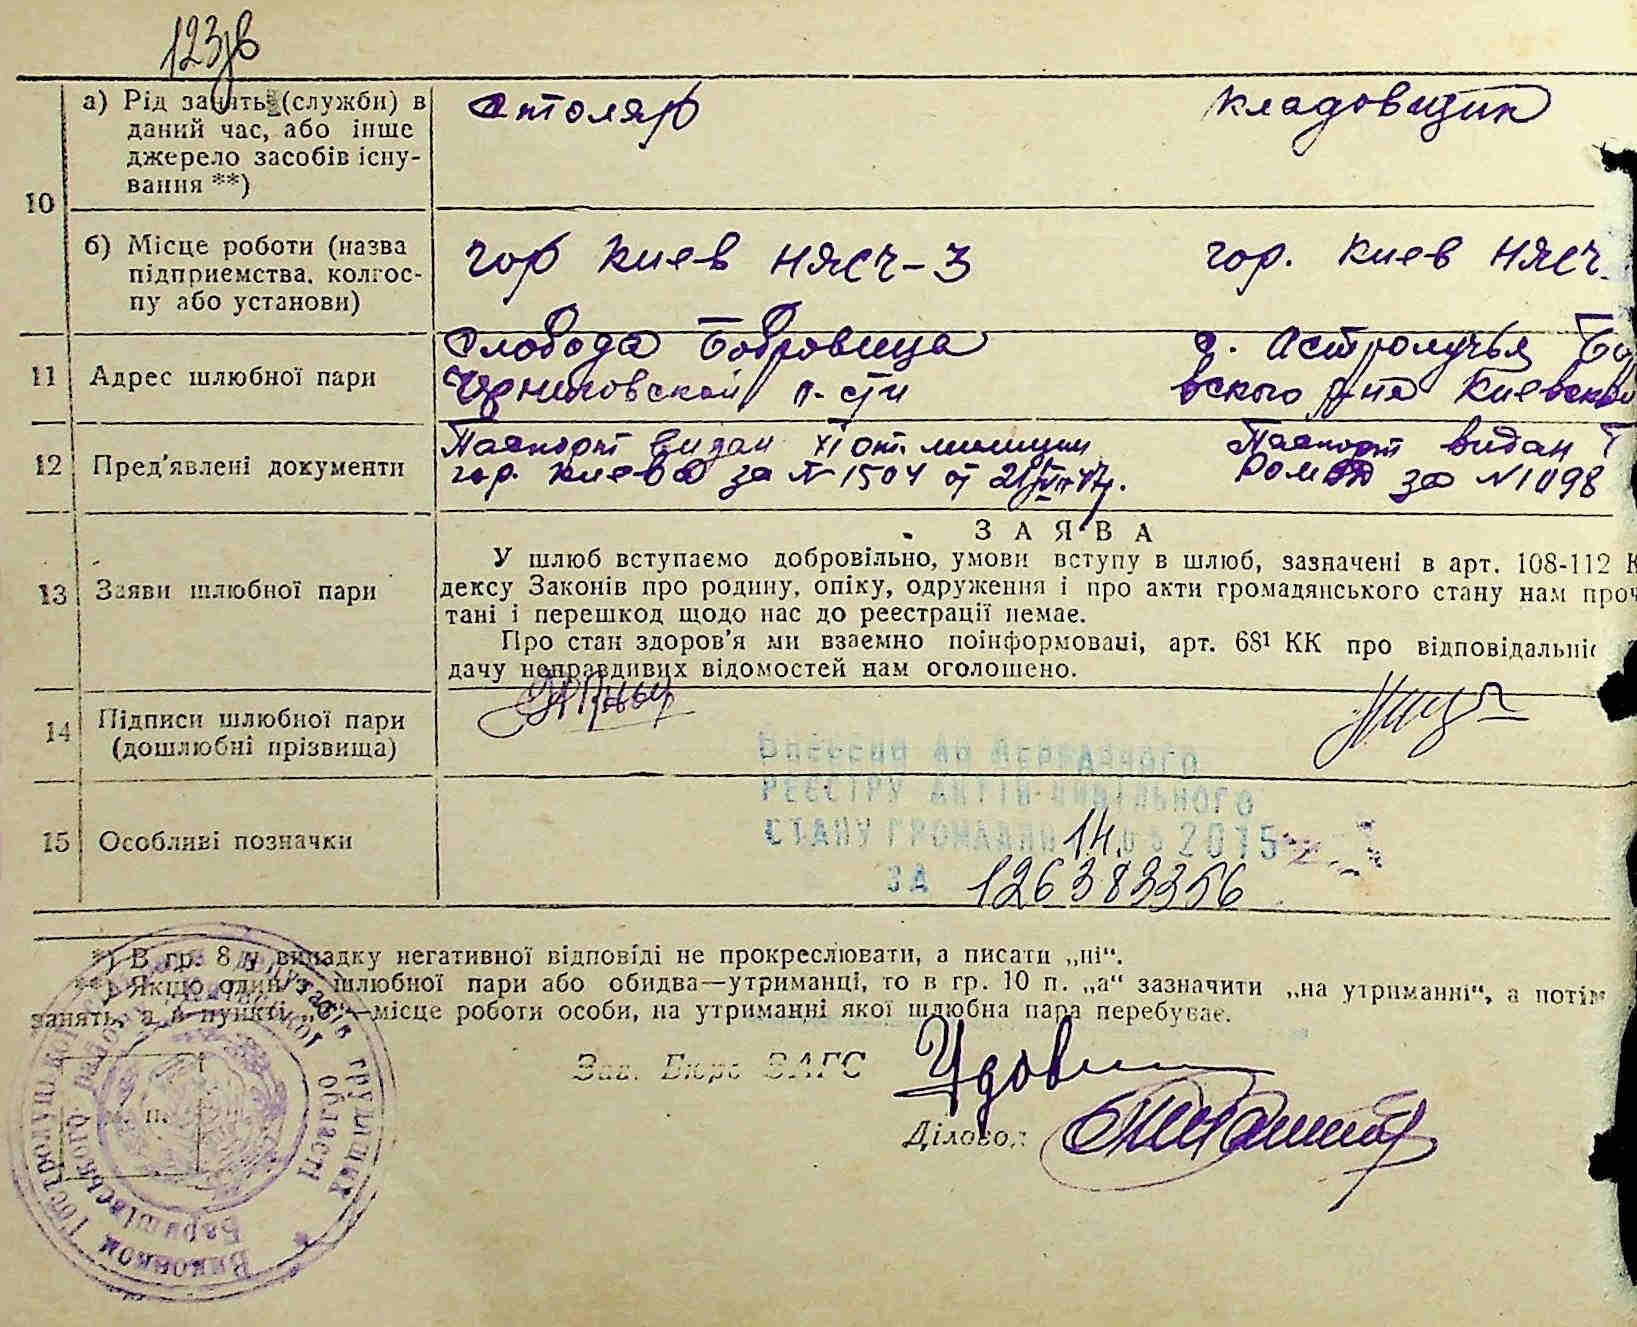 123
10
а) Рід занять (служби) в
даний час, або інше
джерело засобів існу-
вання **)
Столяр
Кладовщик
б) Місце роботи (назва
підприємства, колгос-
пу або установи)
гор Киев НЯСЧ-3
гор. Киев НЯСЧ
11
Адрес шлюбної пари
Слобода Бобровица
Черниговской о-сти
с. Астролучья
вского р-на Киевско
12
Пред'явлені документи
Паспорт видан XI от. милиции
гор. Киева за № 1504 от
Паспорт видан
РОМ за №1098
13
Заяви шлюбної пари
ЗАЯВА
У шлюб вступаємо добровільно, умови вступу в шлюб, зазначені в арт. 108-112 К
дексу Законів про родину, опіку, одруження і про акти громадянського стану нам проч
тані і перешкод щодо нас до реєстрації немає.
Про стан здоров'я ми взаємно поінформовані, арт. 68¹ КК про відповідальніс
дачу неправдивих відомостей нам оголошено.
14
Підписи шлюбної пари
(дошлюбні прізвища)
15
Особливі позначки
Внесено до Державного
реєстру актів цивільного
стану громадян 14.05 2015
ЗА 126383356
*) В гр. 8 у випадку негативної відповіді не прокреслювати, а писати „ні“.
**) Якщо один з шлюбної пари або обидва—утриманці, то в гр. 10 п. „а“ зазначити „на утриманні“, а потім
занять, а в пункті „б“—місце роботи особи, на утриманні якої шлюбна пара перебуває.
Зав. Бюро ЗАГС
Діловод
Виконком
Баришівського
області